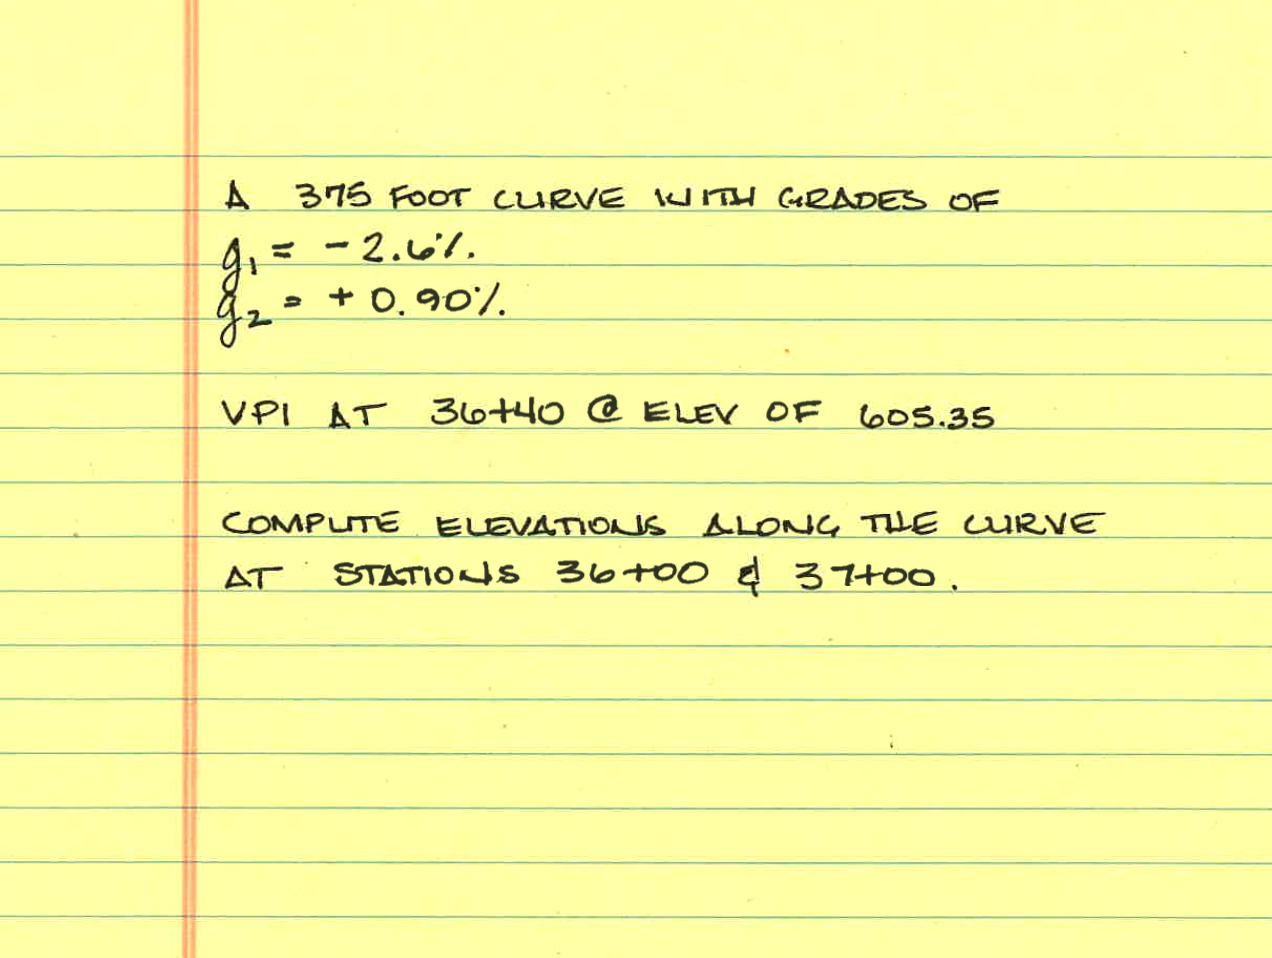 A 375 FOOT CURVE WITH GRADES OF
g1 = - 2.6%.
g2 = + 0.90%.
VPI AT 36+40 @ ELEV OF 605.35
COMPUTE ELEVATIONS ALONG THE CURVE
AT STATIONS 36+00 & 37+00.